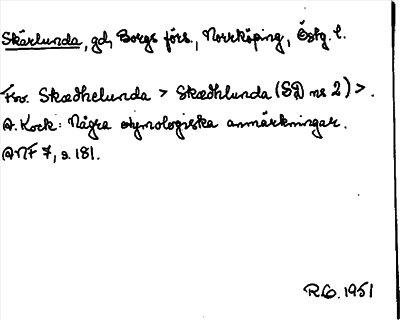 Skärlunda, gd, Borgs förs., Norrköping, Östg. l.
Fsv. Skædhelunda > Skædhlunda (SD ns 2) >.
A. Kock: Några etymologiska anmärkningar.
ANF 7, s. 181.
R.G. 1951